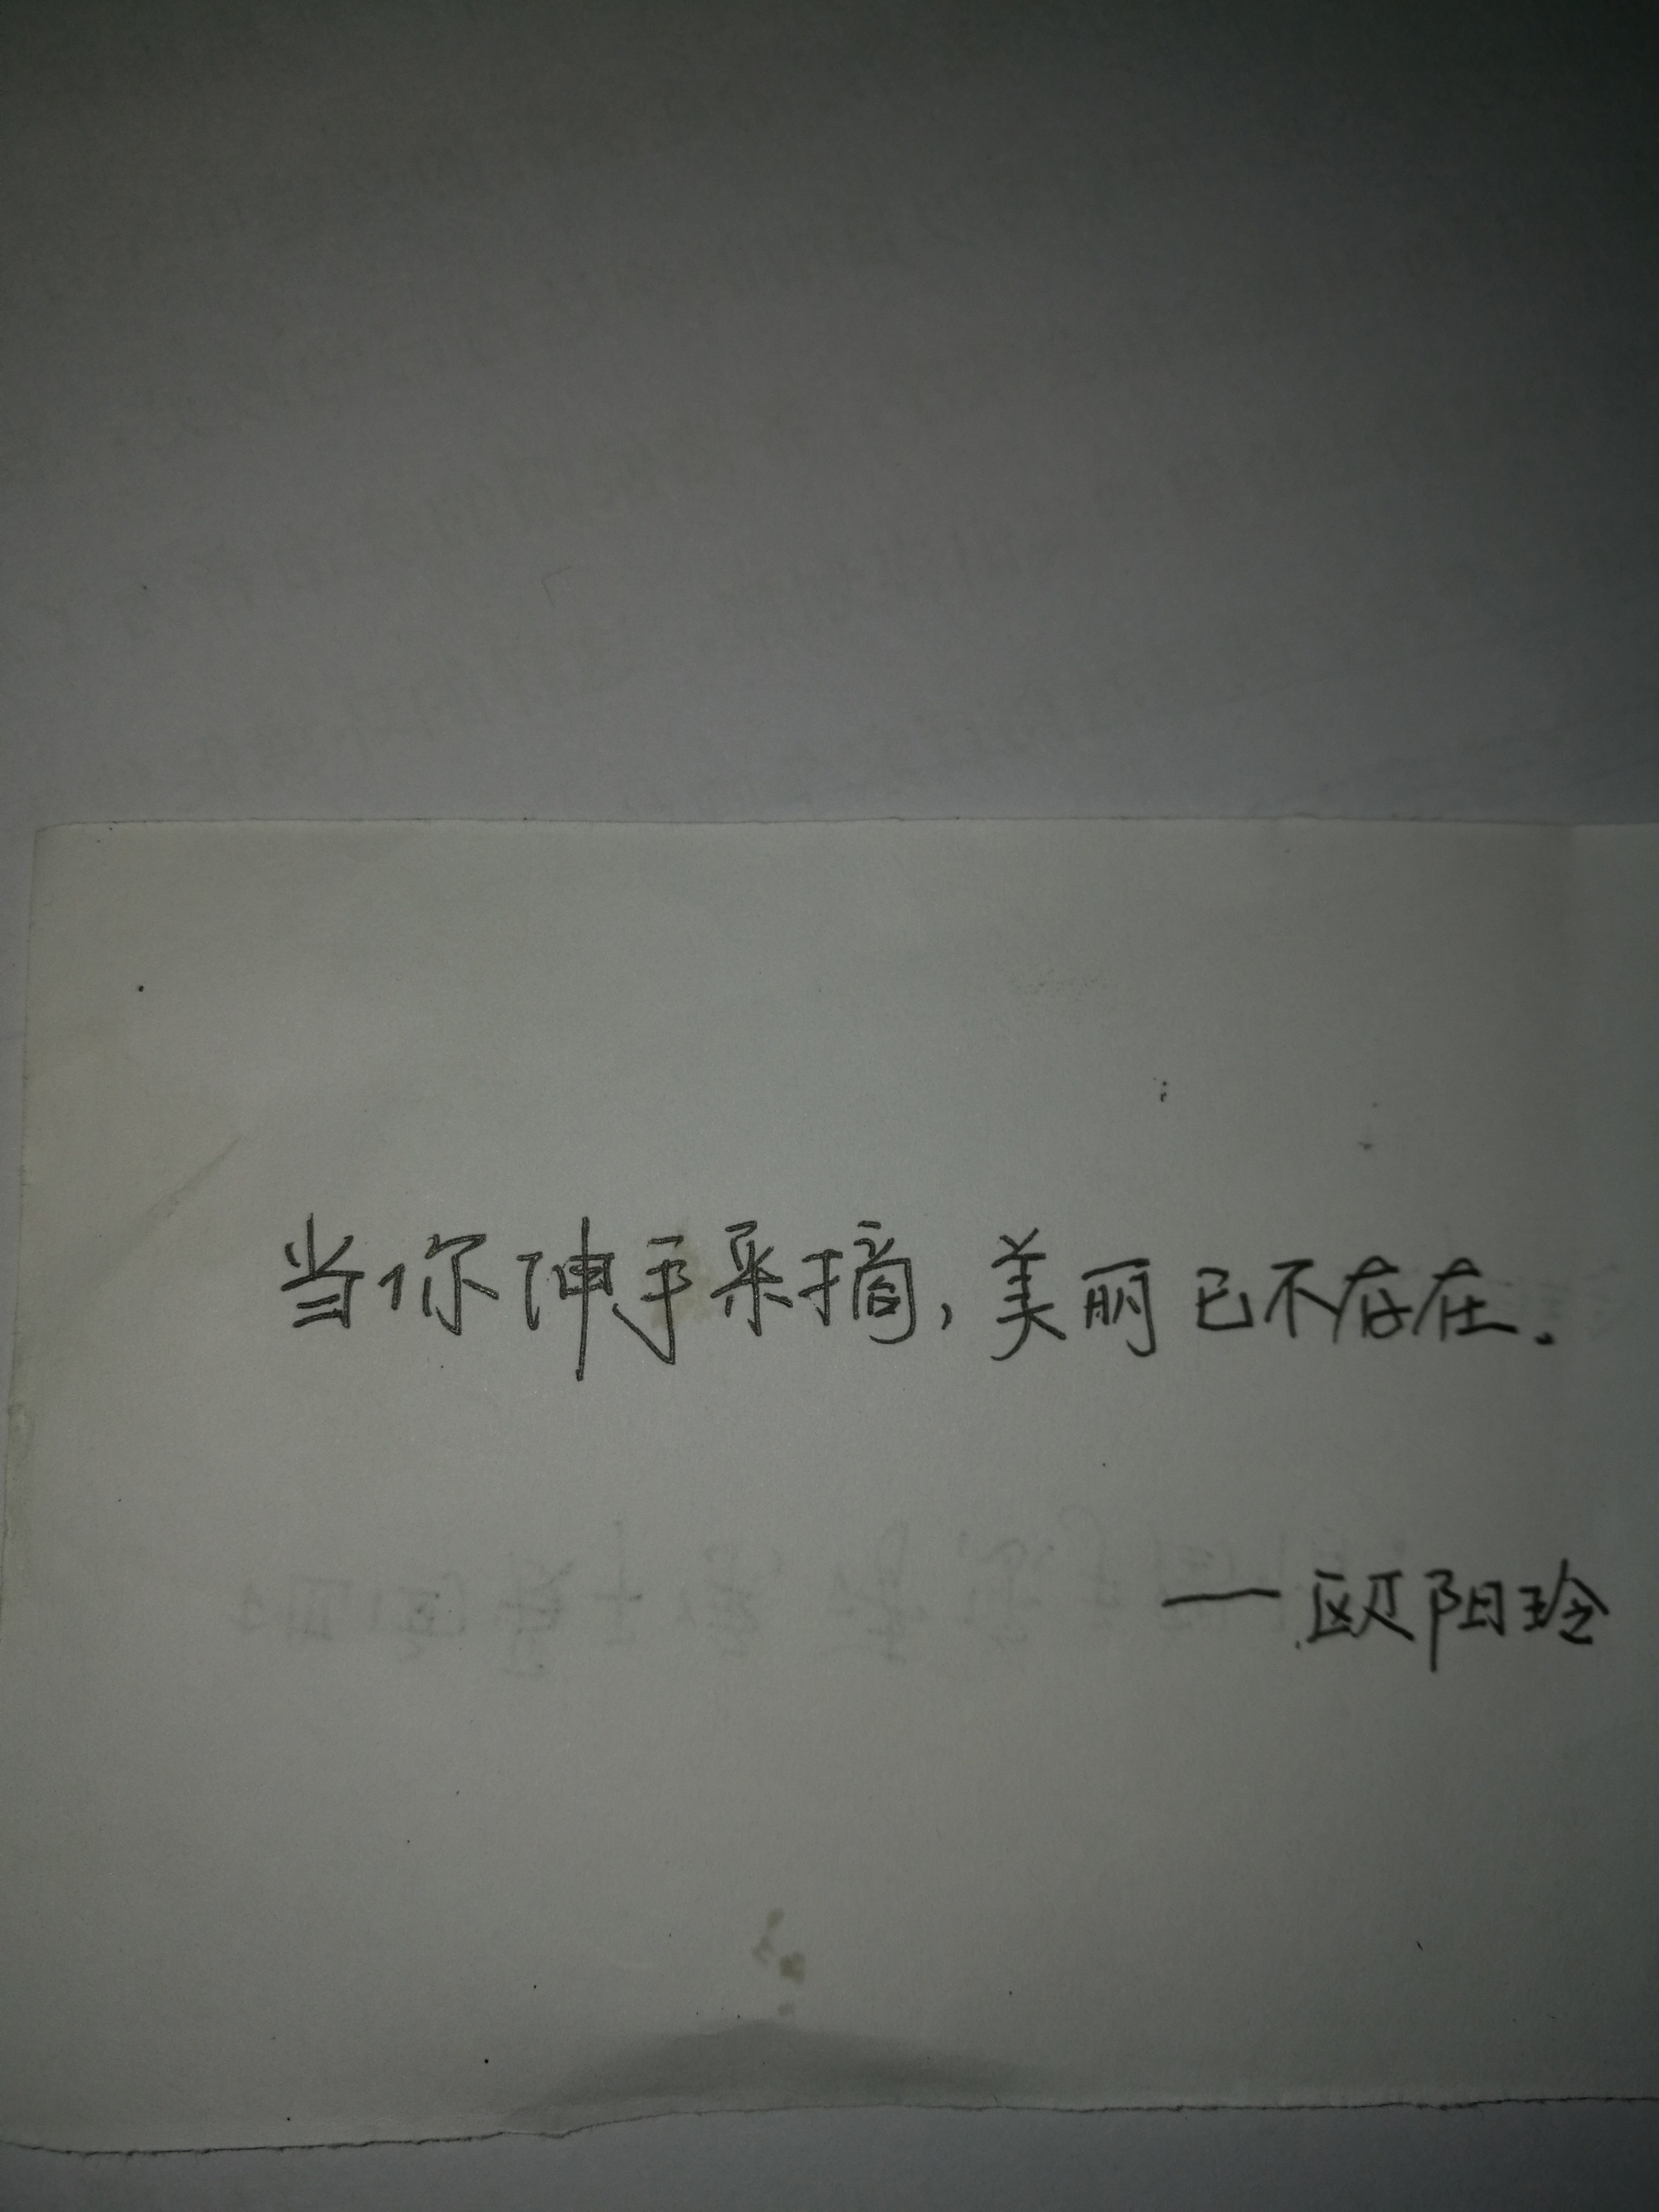 当你伸手采摘,美丽已不存在.
——欧阳玲